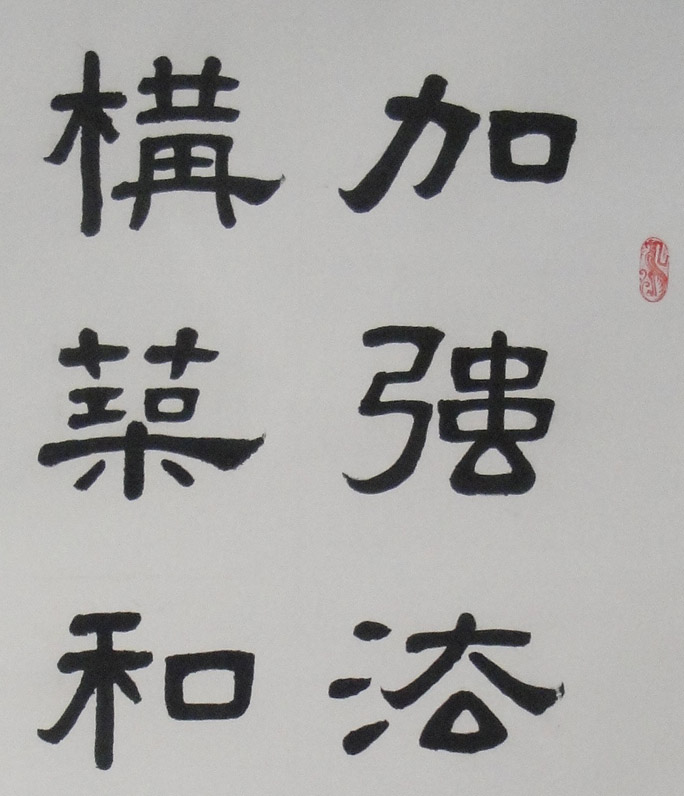 加强法
構築和